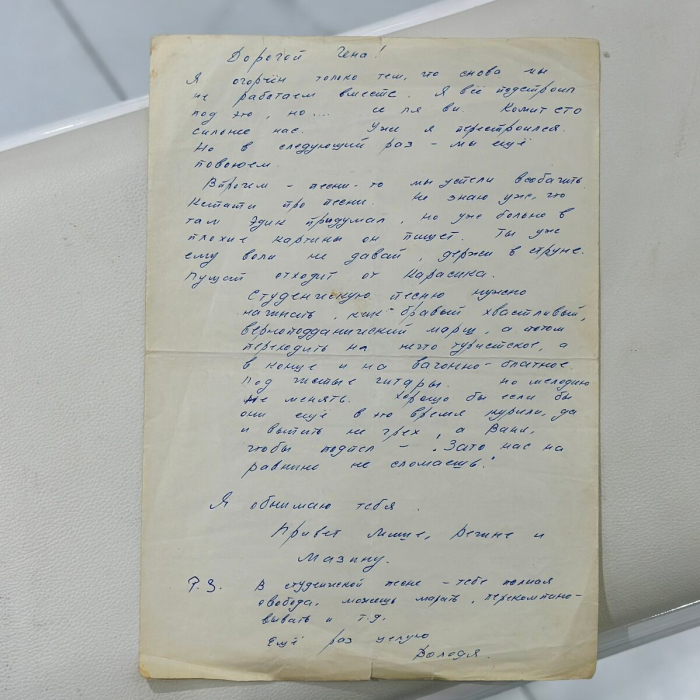 Дорогой Гена!
Я огорчён только тем, что снова мы
не работаем вместе. Я всё подстроил
под это, но... се ля ви. Комитето
сильнее нас. Уже я перестроился.
Но в следующий раз - мы ещё
повоюем.
Впрочем - песни-то мы успели всобачить.
Кстати про песни. Не знаю уже, что
там Эдик придумал, но уже больно в
плохие картины он пишет. Ты уже
ему воли не давай, держи в струне.
Пущай отходит от Карасика.
Студенческую песню нужно
начинать, как бравый хвастливый,
верноподданический марш, а потом
переходить на нечто туристское, а
в конце и на вагонно-блатное.
Под чистые гитары. Но мелодию
не менять. Хорошо бы если бы
они ещё в это время курили, да
и выпить не грех, а Вани,
чтобы подпел - "Зато нас на
равнине не сломаешь."
Я обнимаю тебя.
Привет Лимше, Регине и
Мазину.
P.S. В студенческой песне - тебе полная
свобода, можешь марать, перекомпоно-
вывать и т.д.
Ещё раз целую
Володя.